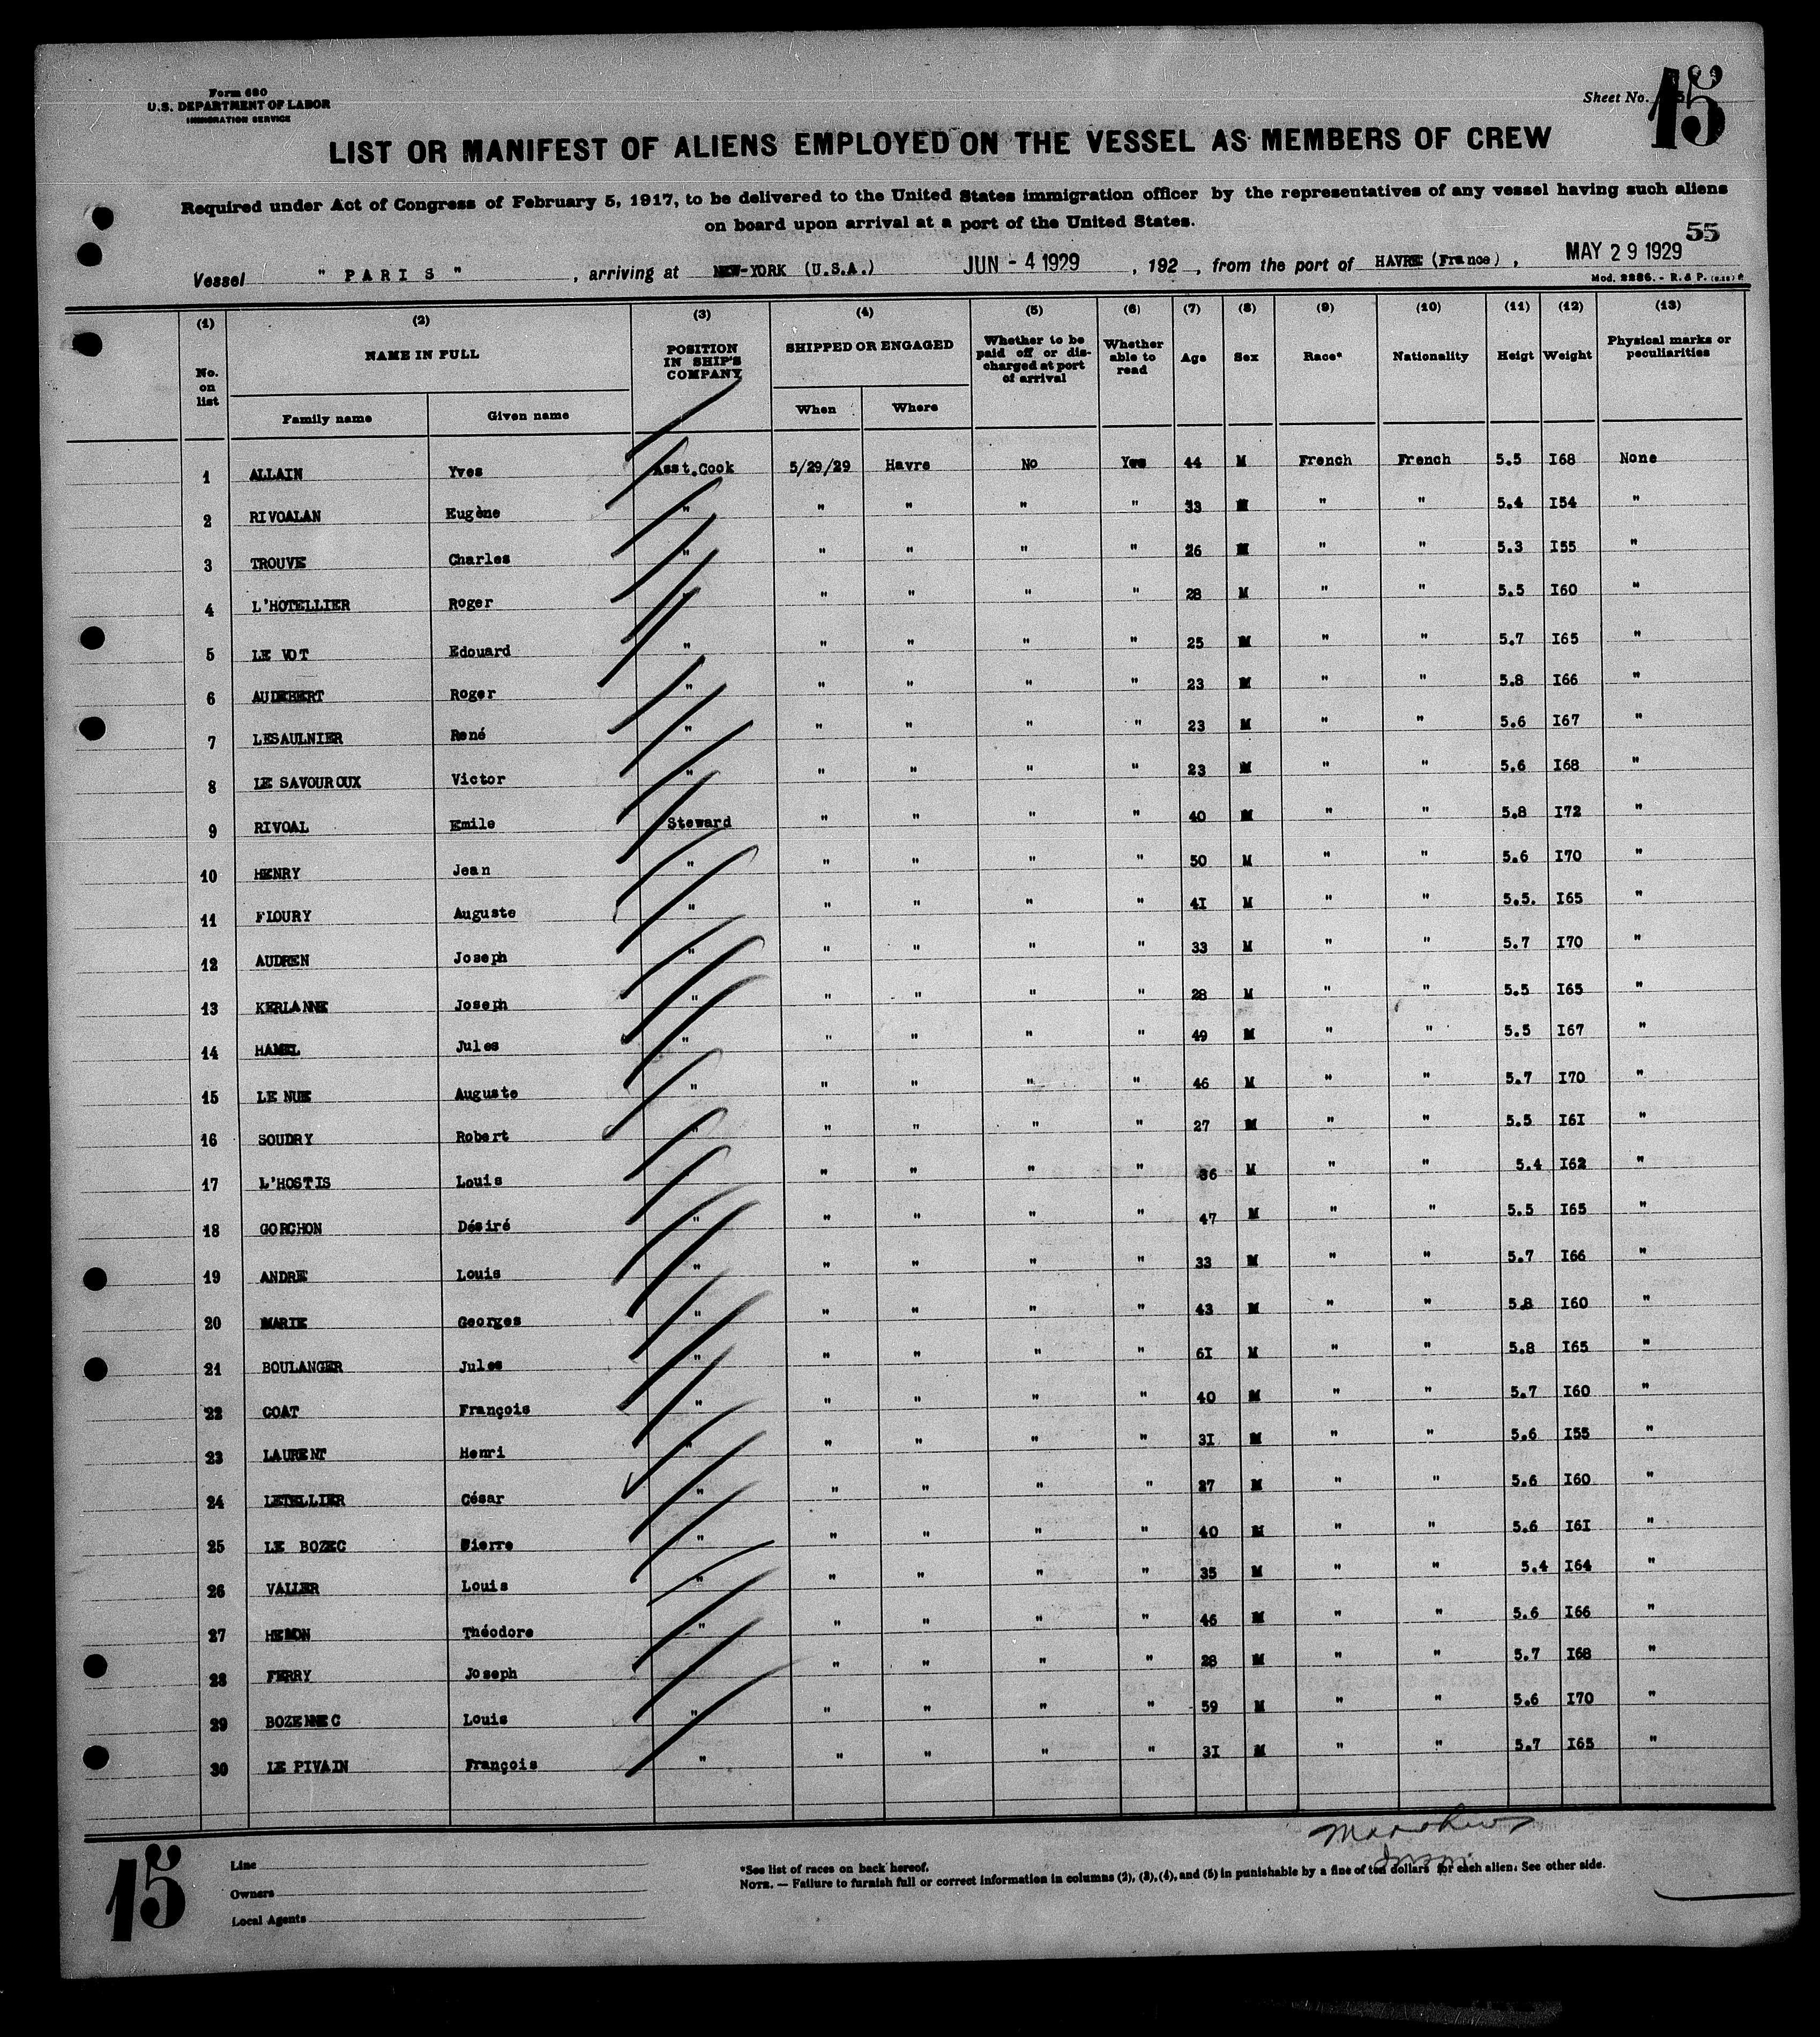 Form 680
U.S. DEPARTMENT OF LABOR
IMMIGRATION SERVICE
Sheet No. 15
LIST OR MANIFEST OF ALIENS EMPLOYED ON THE VESSEL AS MEMBERS OF CREW
Required under Act of Congress of February 5, 1917, to be delivered to the United States immigration officer by the representatives of any vessel having such aliens
on board upon arrival at a port of the United States.
55
Vessel " PARIS " , arriving at NEW-YORK (U.S.A.) JUN - 4 1929 , 192 , from the port of HAVRE (France) , MAY 29 1929
Mod. 2286. - R. & P.
(1) (2) (3) (4) (5) (6) (7) (8) (9) (10) (11) (12) (13)
No. on list NAME IN FULL POSITION IN SHIP'S COMPANY SHIPPED OR ENGAGED Whether to be paid off or discharged at port of arrival Whether able to read Age Sex Race* Nationality Heigt Weight Physical marks or peculiarities
Family name Given name When Where
1 ALLAIN Yves Asst.Cook 5/29/29 Havre No Yes 44 M French French 5.5 I68 None
2 RIVOALAN Eugène " " " " " 33 M " " 5.4 I54 "
3 TROUVE Charles " " " " " 26 M " " 5.3 I55 "
4 L'HOTELLIER Roger " " " " 28 M " " 5.5 I60 "
5 LE VOT Edouard " " " " " 25 M " " 5.7 I65 "
6 AUDEBERT Roger " " " " " 23 M " " 5.8 I66 "
7 LESAULNIER René " " " " " 23 M " " 5.6 I67 "
8 LE SAVOUROUX Victor " " " " " 23 M " " 5.6 I68 "
9 RIVOAL Emile Steward " " " " 40 M " " 5.8 I72 "
10 HENRY Jean " " " " " 50 M " " 5.6 I70 "
11 FLOURY Auguste " " " " " 41 M " " 5.5. I65 "
12 AUDREN Joseph " " " " " 33 M " " 5.7 I70 "
13 KERLANNE Joseph " " " " " 28 M " " 5.5 I65 "
14 HAMEL Jules " " " " " 49 M " " 5.5 I67 "
15 LE NUE Auguste " " " " " 46 M " " 5.7 I70 "
16 SOUDRY Robert " " " " " 27 M " " 5.5 I6I "
17 L'HOSTIS Louis " " " " " 36 M " " 5.4 I62 "
18 GORCHON Désiré " " " " " 47 M " " 5.5 I65 "
19 ANDRE Louis " " " " " 33 M " " 5.7 I66 "
20 MARIE Georges " " " " " 43 M " " 5.8 I60 "
21 BOULANGER Jules " " " " " 6I M " " 5.8 I65 "
22 COAT François " " " " " 40 M " " 5.7 I60 "
23 LAURENT Henri " " " " " 3I M " " 5.6 I55 "
24 LETELLIER César " " " " " 27 M " " 5.6 I60 "
25 LE BOZEC Pierre " " " " " 40 M " " 5.6 I6I "
26 VALLER Louis " " " " " 35 M " " 5.4 I64 "
27 HEMON Théodore " " " " " 46 M " " 5.6 I66 "
28 FERRY Joseph " " " " 28 M " " 5.7 I68 "
29 BOZENNEC Louis " " " " " 59 M " " 5.6 I70 "
30 LE PIVAIN François " " " " " 3I M " " 5.7 I65 "
15
Line
Owners
Local Agents
*See list of races on back hereof.
NOTE. — Failure to furnish full or correct information in columns (2), (3), (4), and (5) in punishable by a fine of ten dollars for each alien. See other side.